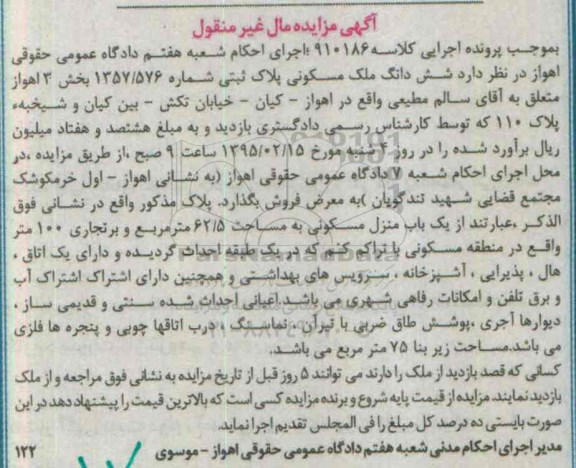 آگهی مزایده مال غیر منقول
بموجب پرونده اجرایی کلاسه ۹۱۰۱۸۶ ؛اجرای احکام شعبه هفتم دادگاه عمومی حقوقی
اهواز در نظر دارد شش دانگ ملک مسکونی پلاک ثبتی شماره ۱۳۵۷/۵۷۶ بخش ۳ اهواز
متعلق به آقای سالم مطیعی واقع در اهواز - کیان - خیابان تکش - بین کیان و شیخبهء
پلاک ۱۱۰ که توسط کارشناس رسمی دادگستری بازدید و به مبلغ هشتصد و هفتاد میلیون
ریال برآورد شده را در روز ۴ شنبه مورخ ۱۳۹۵/۰۲/۱۵ ساعت ۹ صبح ،از طریق مزایده ،در
محل اجرای احکام شعبه ۷ دادگاه عمومی حقوقی اهواز (به نشانی اهواز - اول خرمکوشک
مجتمع قضایی شهید تندگویان )به معرض فروش بگذارد. پلاک مذکور واقع در نشانی فوق
الذکر ،عبارتند از یک باب منزل مسکونی به مساحت ۶۲/۵ مترمربع و برتجاری ۱۰۰ متر
واقع در منطقه مسکونی با تراکم که در یک طبقه احداث گردیده و دارای یک اتاق ،
هال ، پذیرایی ، آشپزخانه ، سرویس های بهداشتی و همچنین دارای اشتراک اشتراک آب
و برق تلفن و امکانات رفاهی شهری می باشد.اعیانی احداث شده سنتی و قدیمی ساز ،
دیوارها آجری ،پوشش طاق ضربی با تیرآن ، نماسنگ ، درب اتاقها چوبی و پنجره ها فلزی
می باشد.مساحت زیر بنا ۷۵ متر مربع می باشد.
کسانی که قصد بازدید از ملک را دارند می توانند ۵ روز قبل از تاریخ مزایده به نشانی فوق مراجعه و از ملک
بازدید نمایند. مزایده از قیمت پایه شروع و برنده مزایده کسی است که بالاترین قیمت را پیشنهاد دهد در این
صورت بایستی ده درصد کل مبلغ را فی المجلس تقدیم اجرا نماید.
مدیر اجرای احکام مدنی شعبه هفتم دادگاه عمومی حقوقی اهواز - موسوی ۱۲۲